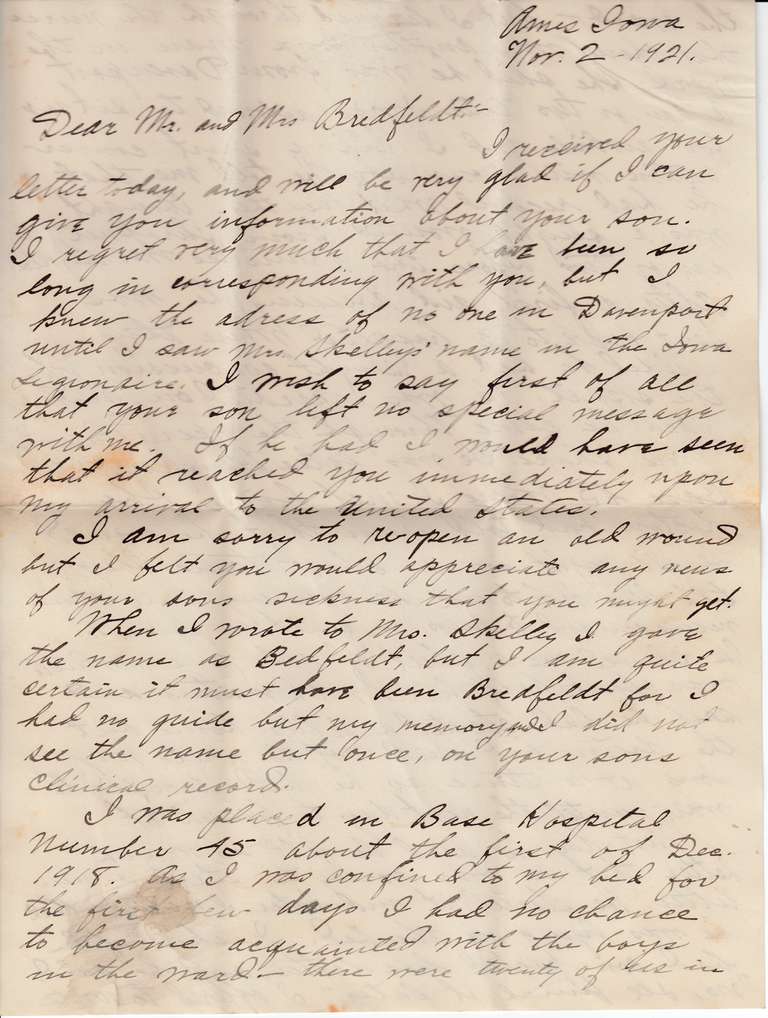 Ames Iowa
Nov. 2 - 1921.
Dear Mr. and Mrs Bredfeldt:-
I received your
letter today, and will be very glad if I can
give you information about your son.
I regret very much that I have been so
long in corresponding with you, but I
knew the adress of no one in Davenport
until I saw Mrs. Skelleys' name in the Iowa
Legionaire. I wish to say first of all
that your son left no special message
with me. If he had I would have seen
that it reached you immediately upon
my arrival to the United States.
I am sorry to re-open an old wound
but I felt you would appreciate any news
of your sons sickness that you might get.
When I wrote to Mrs. Skelley I gave
the name as Bedfeldt, but I am quite
certain it must have been Bredfeldt for I
had no guide but my memory and I did not
see the name but once, on your sons
clinical record.
I was placed in Base Hospital
Number 45 about the first of Dec.
1918. As I was confined to my bed for
the first few days I had no chance
to become acquainted with the boys
in the ward - there were twenty of us in